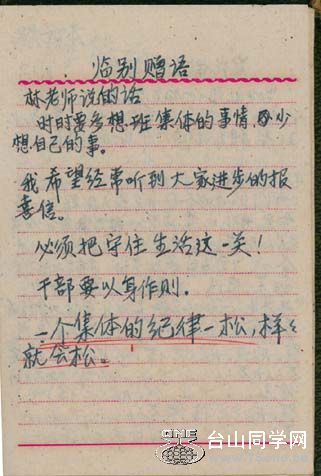 临别赠语
林老师说的话
时时要多想班集体的事情，少
想自己的事。
我希望经常听到大家进步的报
喜信。
必须把守住生活这一关！
干部要以身作则。
一个集体的纪律一松，样々
就会松。
ONE
台山同学网